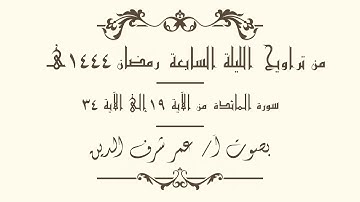 من تراويح الليلة السابعة رمضان ١٤٤٤هـ
سورة المائدة من الآية ١٩ إلى الآية ٣٤
بصوت أ/ عمر شرف الدين